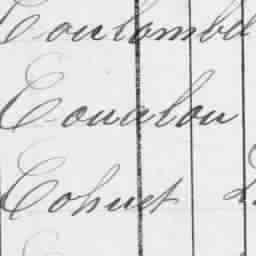 Coulombel
Coualou
Cohuet